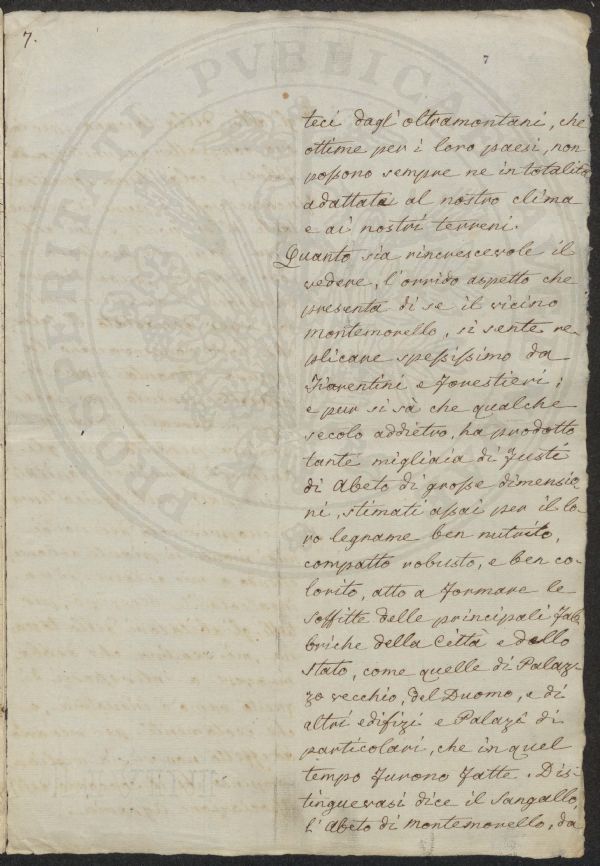 7.
7
teci dagl' oltramontani, che
ottime per i loro paesi, non
possono sempre ne in totalità
adattata al nostro clima
e ai nostri terreni.
Quanto sia rincrescevole il
vedere, l'orrido aspetto che
presenta di se il vicino
Montemorello, si sente re-
plicare spessissimo da
Fiorentini e Forestieri;
e pur si sà che qualche
secolo addietro, ha prodotto
tante migliaia di Fusti
di Abeto di grosse dimensio
ni, stimati assai per il lo-
ro legname ben nutrito,
compatto robusto, e ben co-
lorito, atto a formare le
Soffitte delle principali Fab
briche della Città e dello
Stato, come quelle di Palaz-
zo vecchio, del Duomo, e di
altri edifizi e Palazi di
particolari, che in quel
tempo furono fatte. Dis-
tinguevasi dice il Sangallo,
l'Abeto di Montemorello, da
PROSPERITATI PVBLICAE